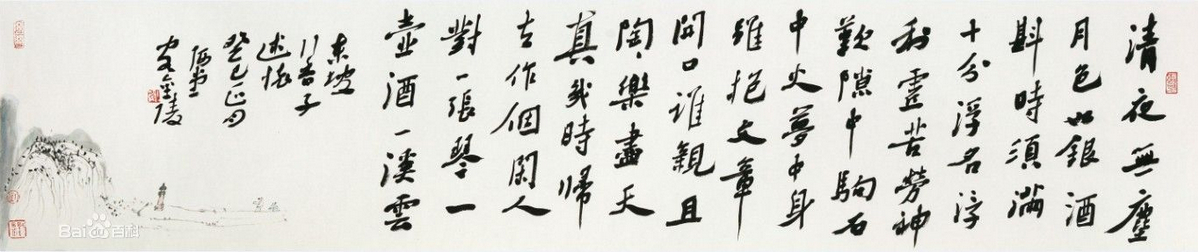 清夜無塵
月色如銀酒
斟時須滿
十分浮名浮
利虛苦勞神
歎隙中駒石
中火夢中身
雖抱文章
開口誰親且
陶、樂盡天
真幾時歸
去作個閑人
對一張琴一
壺酒一溪雲
東坡
行香子
述懷
癸巳正月
金陵
Bai百科